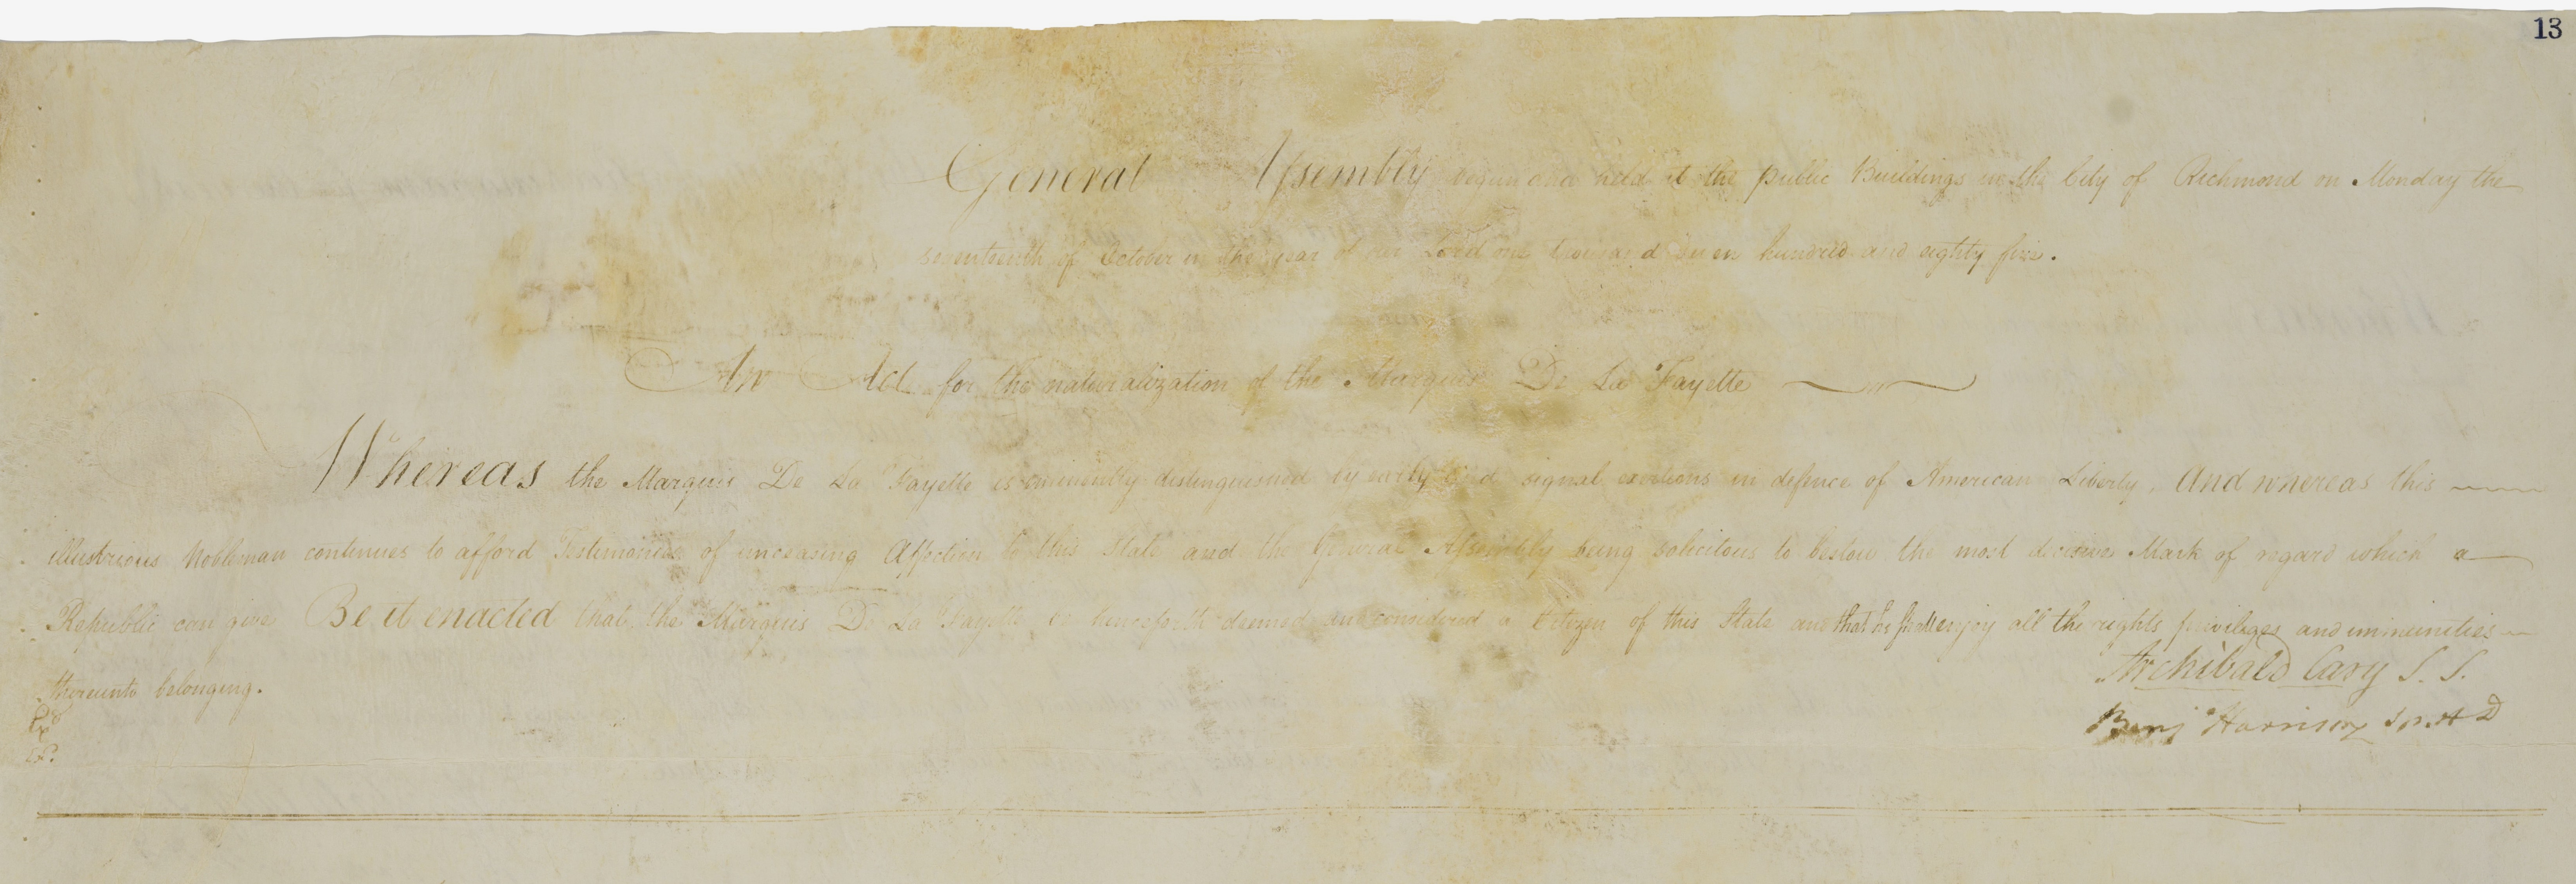 13
General Assembly begun and held at the public Buildings in the City of Richmond on Monday the
seventeenth of October in the year of our Lord one thousand seven hundred and eighty five.
An Act for the naturalization of the Marquis De La Fayette
Whereas the Marquis De La Fayette is eminently distinguished by early and signal exertions in defence of American Liberty, And whereas this
illustrious Nobleman continues to afford Testimonies of unceasing Affection to this State and the General Assembly being solicitous to bestow the most decisive Mark of regard which a
Republic can give Be it enacted that the Marquis De La Fayette be henceforth deemed and considered a Citizen of this State and that he shall enjoy all the rights priviliges and immunities
thereunto belonging.
Archibald Cary S. S.
Benj Harrison Sp. H D